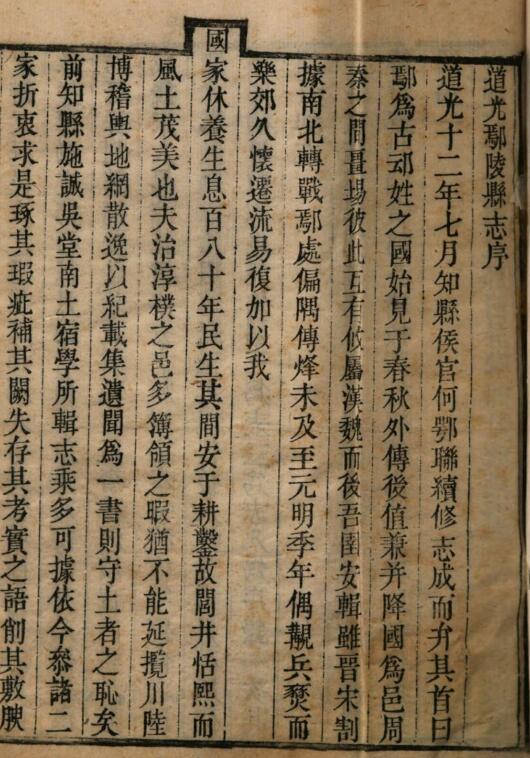 道光鄢陵縣志序
道光十二年七月知縣侯官何鄂聯續修志成而弁其首曰
鄢爲古妘姓之國始見于春秋外傳後值兼并降國爲邑周
秦之間畺場彼此互有攸屬漢魏而後吾圉安輯雖晉宋割
據南北轉戰鄢處偏隅傳烽未及至元明季年偶覯兵燹而
樂郊久懷遷流易復加以我
國家休養生息百八十年民生其間安于耕鑿故閭井恬熙而
風土茂美也夫治淳樸之邑多簿領之暇猶不能延攬川陸
博稽輿地網散逸以紀載集遺聞爲一書則守土者之恥矣
前知縣施誠吳堂南土宿學所輯志乘多可據依今叅諸二
家折衷求是琢其瑕疵補其闕失存其考實之語削其敷腴